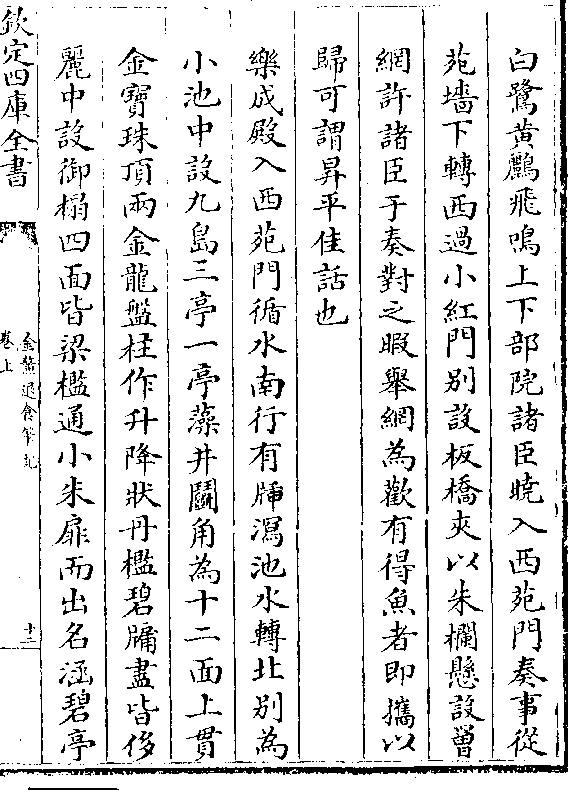 白鷺黄鸝飛鳴上下部院諸臣曉入西苑門奏事從
苑墻下轉西過小紅門别設板橋夾以朱欄懸設罾
網許諸臣于奏對之暇舉網為歡有得魚者即攜以
歸可謂昇平佳話也
樂成殿入西苑門循水南行有牐瀉池水轉北别為
小池中設九島三亭一亭藻井鬭角為十二面上貫
金寶珠頂兩金龍盤柱作升降狀丹檻碧牖盡皆侈
麗中設御榻四面皆梁檻通小朱扉而出名涵碧亭
欽定四庫全書
金鰲退食筆記
卷上
十三